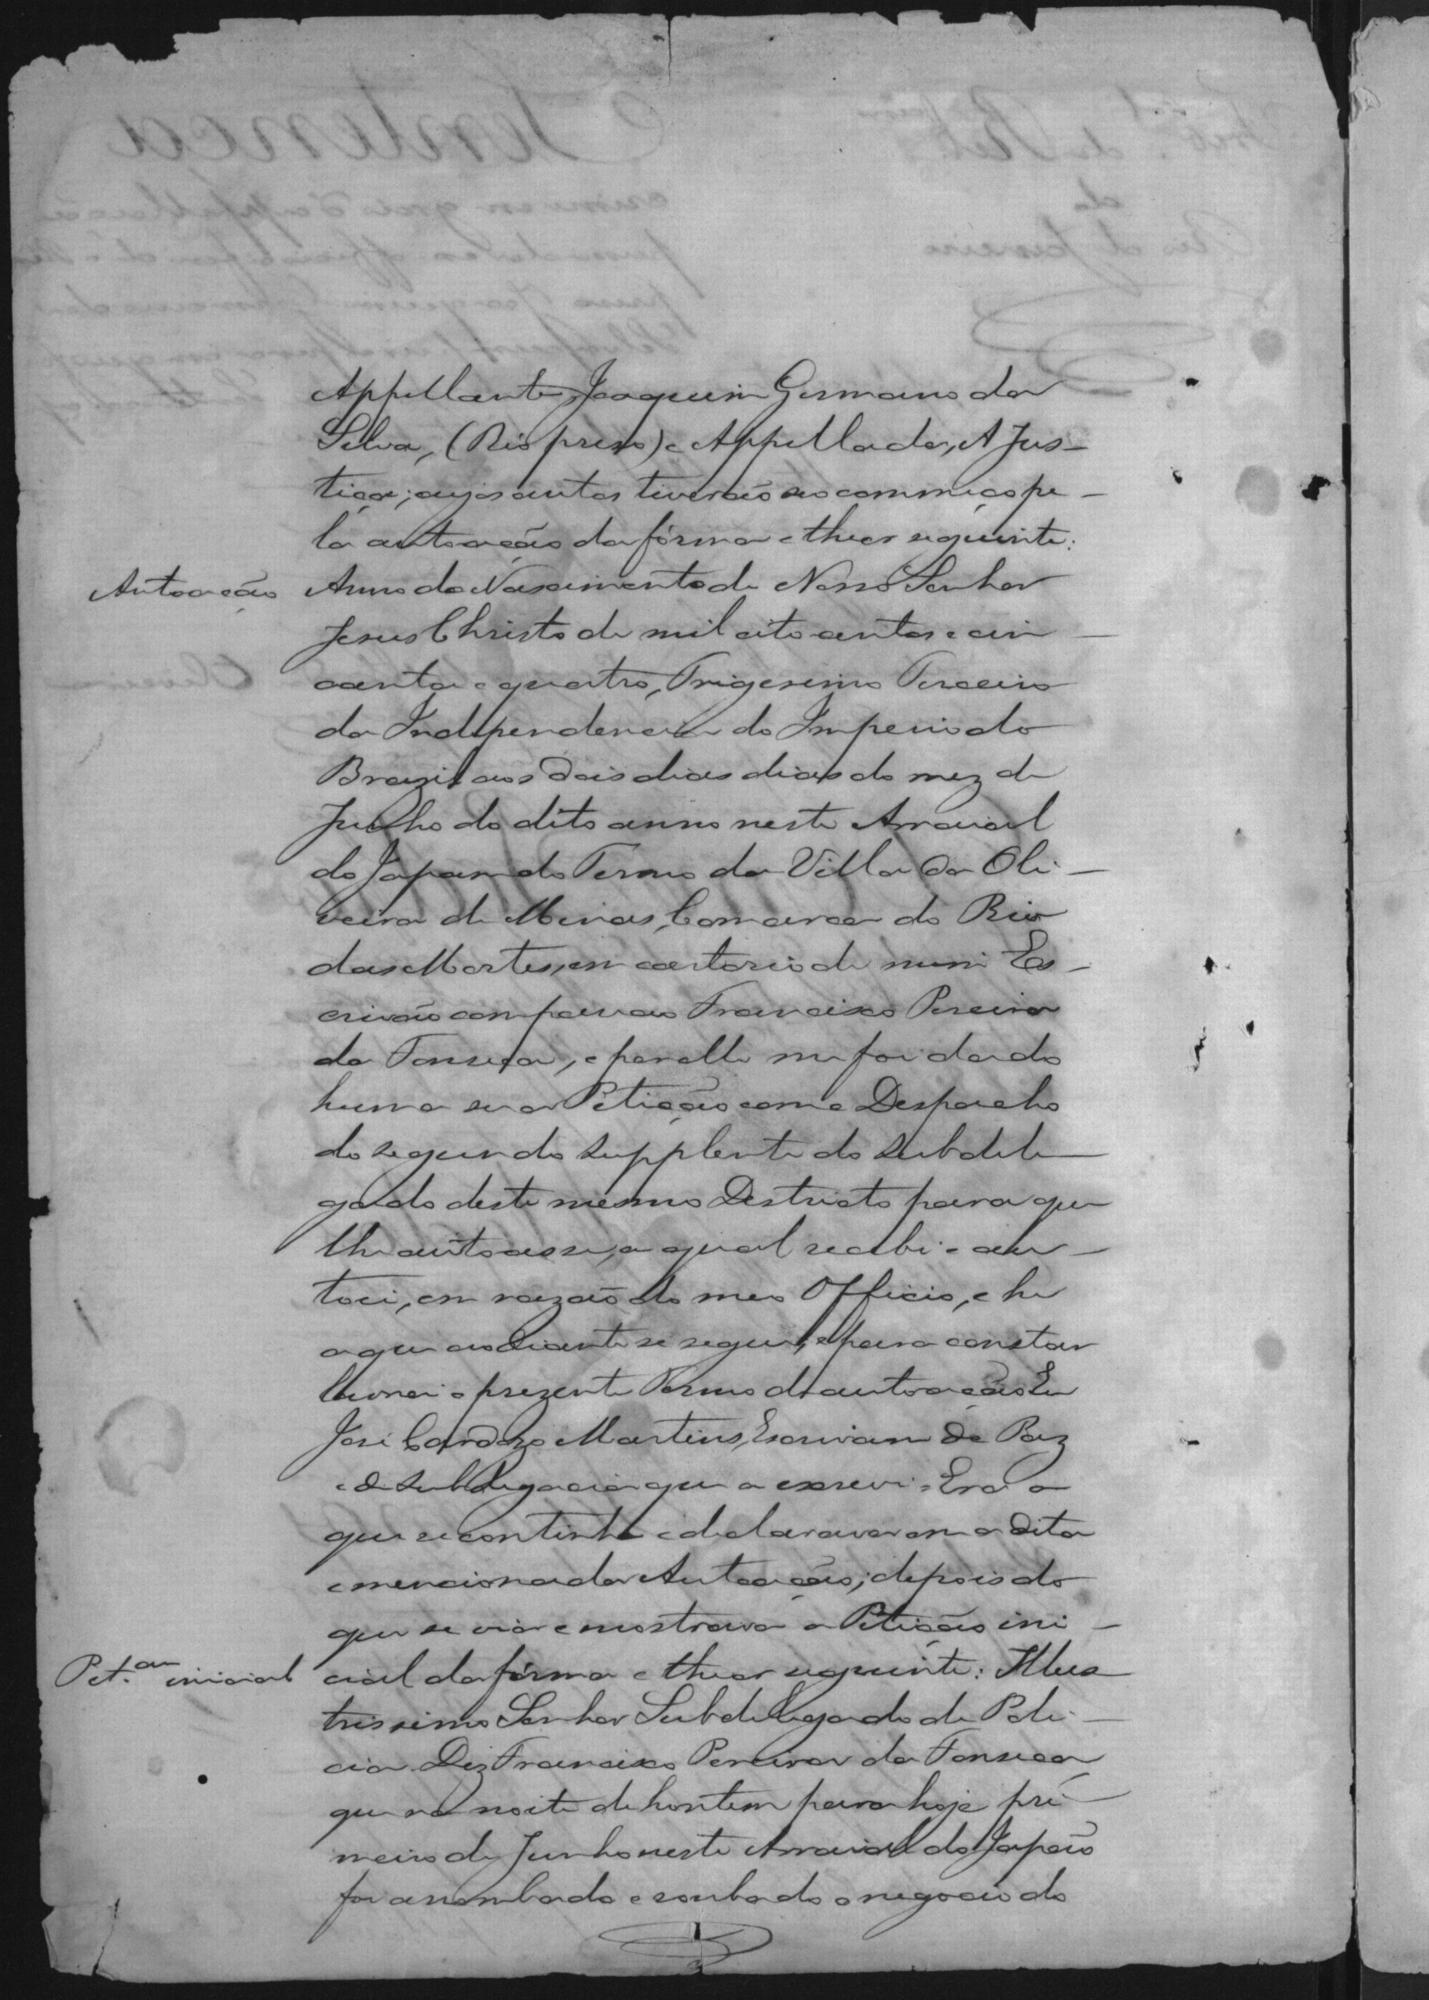 Appellante, Joaquim Germano da
Silva, (Reo preso) e Appellada, A Jus-
tiça; cujos autos tiverão seo commeço pe-
la autoação da fórma e theor seguinte:
Autoação Anno do Nascimento de Nosso Senhor
Jesus Christo de mil oito centos e cin-
coenta e quatro, Trigesimo Terceiro
da Independencia do Imperio do
Brazil aos dois dias dias do mez de
Junho do dito anno neste Arraial
do Japam do Termo da Villa da Oli-
veira de Minas, Comarca do Rio
das Mortes, em cartorio de mim Es-
crivão compareceo Francisco Pereira
da Fonseca, e por elle me foi dado
huma sua Petição com o Despacho
do segundo supplente do Subdele
gado deste mesmo Destricto para que
lhe autoasse, a qual recebi e au-
toei, em razão do meo Officio, e he
a que ao diante se segue, e para constar
lavrei o prezente Termo de autoação Eu
José Cardozo Martins, Escrivam de Paz
e de Subdelegacia que a escrevi. Era o
que se continha e declarava em a dita
e mencionada Autoação; depois do
que se via e mostrava a Petição ini-
Pet.am inicial cial da fórma e theor seguinte: Illus
trissimo Senhor Subdelegado de Poli-
cia. Diz Francisco Pereira da Fonseca,
que na noite de hontem para hoje pri-
meiro de Junho neste Arraial do Japão
foi arrombado e roubado o negocio do